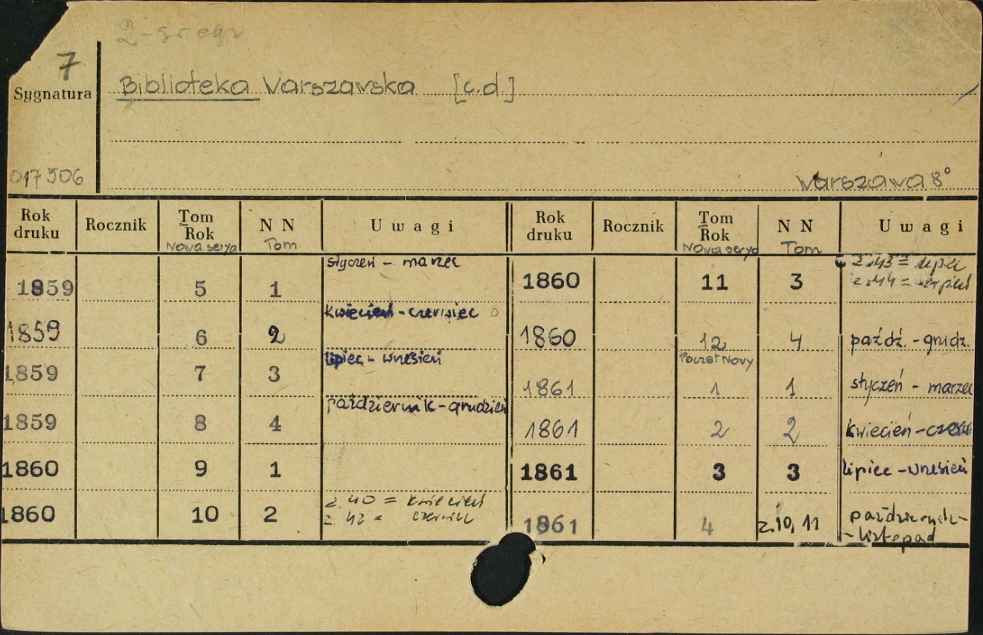 7
Sygnatura
Biblioteka Warszawska [c.d.]
017506
Warszawa 8°
Rok druku Rocznik Tom Rok Nowa serya N N Tom Uwagi Rok druku Rocznik Tom Rok Nowa serya N N Tom Uwagi
1859 5 1 styczeń - marzec
1859 6 2 kwiecień - czerwiec
1859 7 3 lipiec - wrzesień
1859 8 4 październik - grudzień
1860 9 1
1860 10 2 z 40 = kwiecień
z. 42 = czerwiec
1860 11 3 z.43 = lipiec
z.44 = sierpień
1860 12 4 paźdź. - grudz.
Poczet Nowy
1861 1 1 styczeń - marzec
1861 2 2 kwiecień - czerw
1861 3 3 lipiec - wrzesień
1861 4 z.10, 11 październik-
- listopad